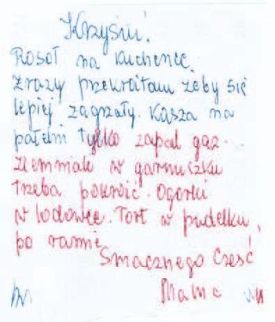 Krzysiu!
Rosół na kuchence.
Zrazy przekroiłam żeby się
lepiej zagrzały. Kasza na
patelni tylko zapal gaz.
Ziemniaki w garnuszku
trzeba pokroić. Ogórki
w lodówce. Tort w pudełku,
po ramie
Smacznego Cześć
Mama